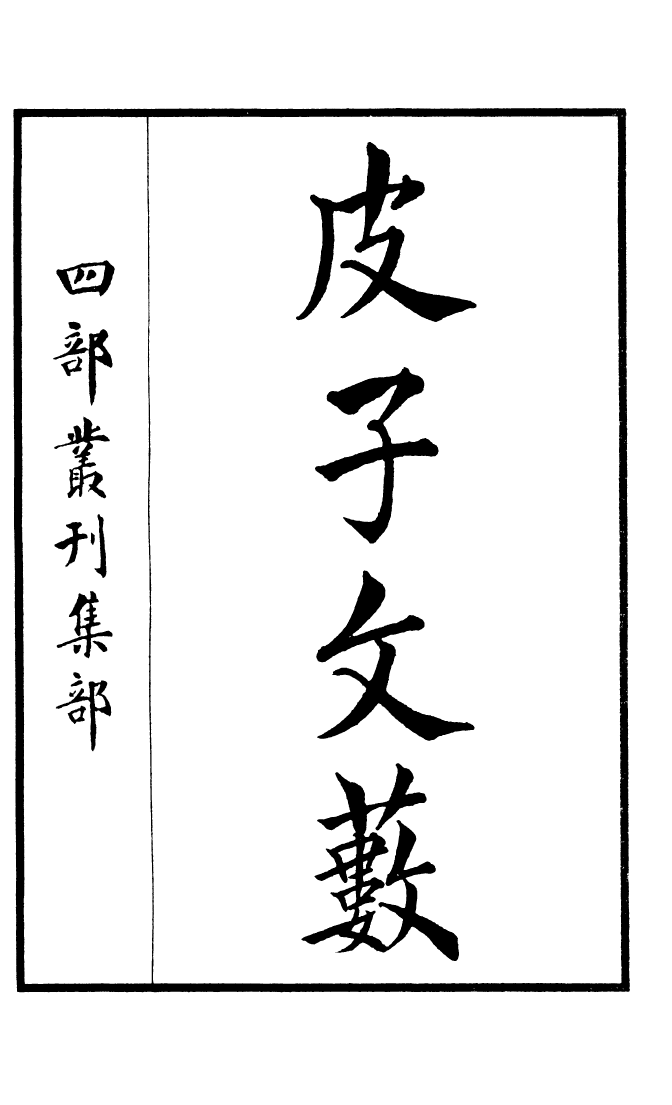 皮子文藪
四部叢刊集部